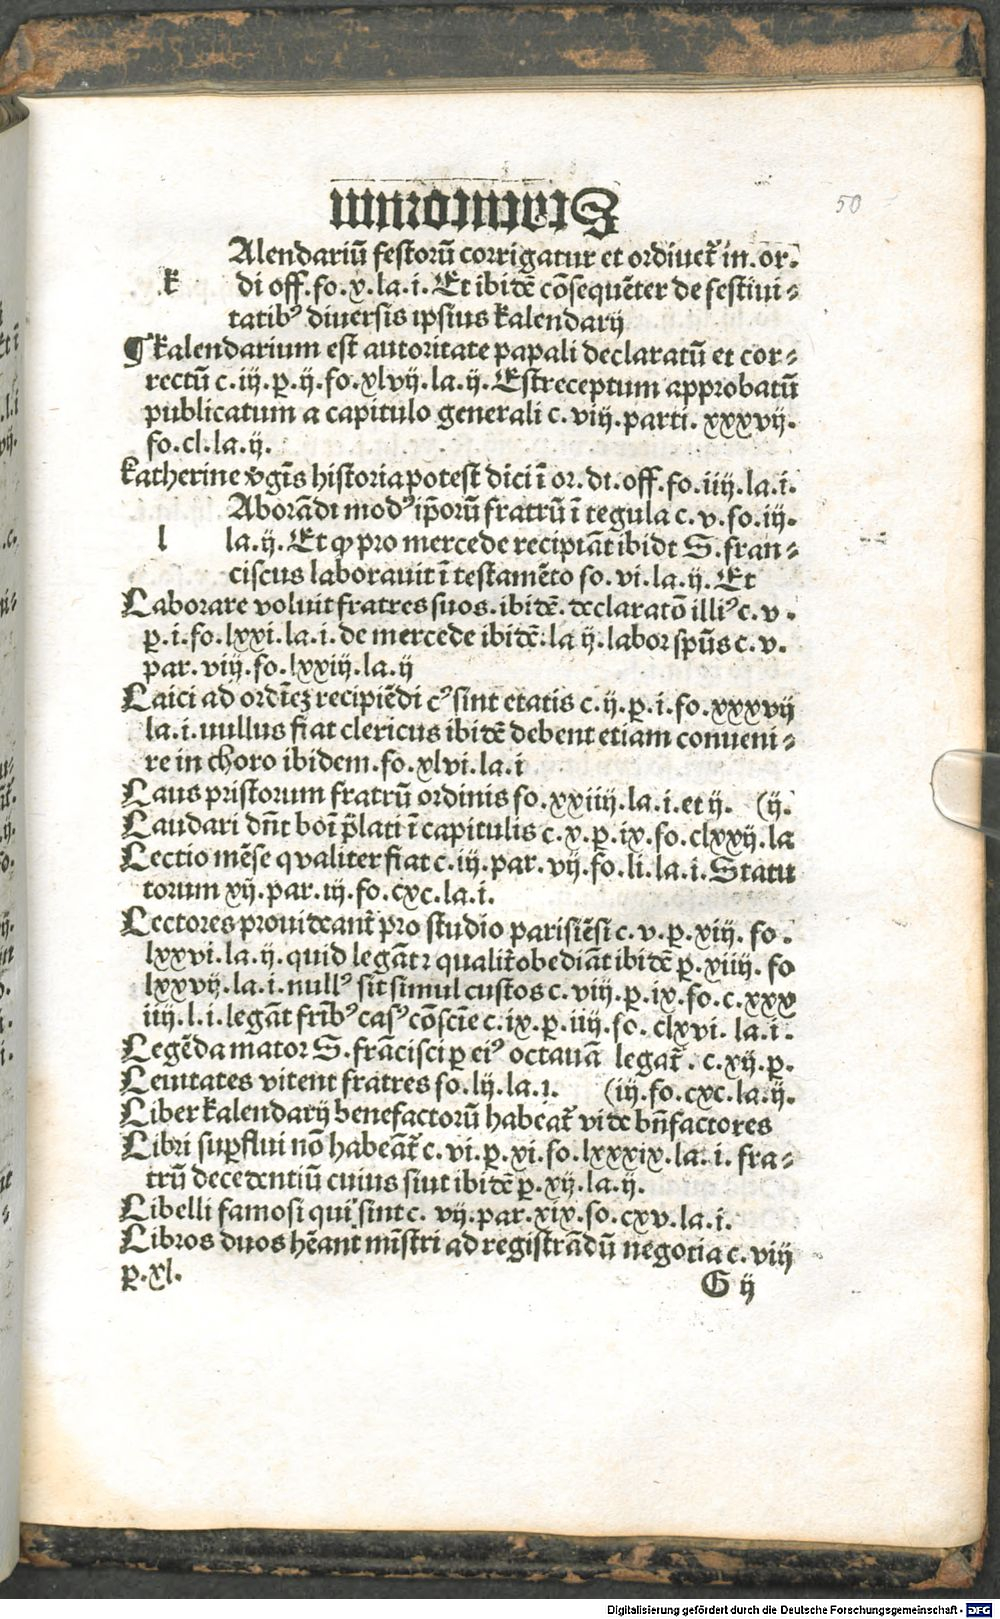 Statutorum
50
Alendariū festorū corrigatur et ordiuet᷑ in. or.
k di off. fo. x. la. i. Et ibidē cōsequēter de festiui-
tatibꝰ diuersis ipsius kalendarij
¶ kalendarium est autoritate papali declaratū et cor-
rectū c. iij. p. ij. fo. xlvij. la. ij. Est receptum approbatū
publicatum a capitulo generali c. viij. parti. xxxvij.
fo. cl. la. ij.
katherine v̄gīs historia potest dici ī or. di. off. fo. iiij. la. i.
Aborādi modꝰ ip̄orū fratrū ī regula c. v. fo. iij.
l la. ij. Et ꝙ pro mercede recipiāt ibidē S. fran-
ciscus laborauit ī testamēto fo. vi. la. ij. Et
Laborare voluit fratres suos. ibidē. declaratō illiꝰ c. v.
p. i. fo. lxxi. la. i. de mercede ibidē: la ij. labor spūs c. v.
par. viij. fo. lxxiij. la. ij
Laici ad ordīeꝫ recipiēdi cꝰ sint etatis c. ij. p. i. fo. xxxvij
la. i. uullus fiat clericus ibidē debent etiam conueni-
re in choro ibidem. fo. xlvi. la. i
Laus pristorum fratrū ordinis fo. xxiiij. la. i. et ij. (ij.
Laudari dn̄t boī p̄lati ī capitulis c. x. p. ix. fo. clxxij. la
Lectio mēse qvaliter fiat c. iij. par. vij. fo. li. la. i. Statu
torum xij. par. iij. fo. cxc. la. i.
Lectores prouideant᷑ pro studio parisiēsi c. v. p. xiij. fo.
lxxvi. la. ij. quid legāt ꝛ qualit᷑ obediāt ibidē p. xiiij. fo
lxxvij. la. i. nullꝰ sīt simul custos c. viij. p. ix. fo. c. xxx
iiij. l. i. legāt fribꝰ casꝰ cōscīe c. ix. p. iiij. fo. clxvi. la. i.
Legēda maior S. frācisci ꝑ eiꝰ octauā legat᷑. c. xij. p.
Leuitates vitent fratres fo. lij. la. i. (iij. fo. cxc. la. ij.
Liber kalendarij benefactorū habeat᷑ vide bn̄factores
Libri suꝑflui nō habeāt᷑ c. vi. p. xi. fo. lxxxix. la. i. fra-
trū decedentiū cuius siut ibidē p. xij. la. ij.
Libelli famosi qui sint c. vij. par. xix. fo. cxv. la. i.
Libros duos hēant mīstri ad registrādū negotia c. viij
p. xl.
G ij
Digitalisierung gefördert durch die Deutsche Forschungsgemeinschaft - DFG